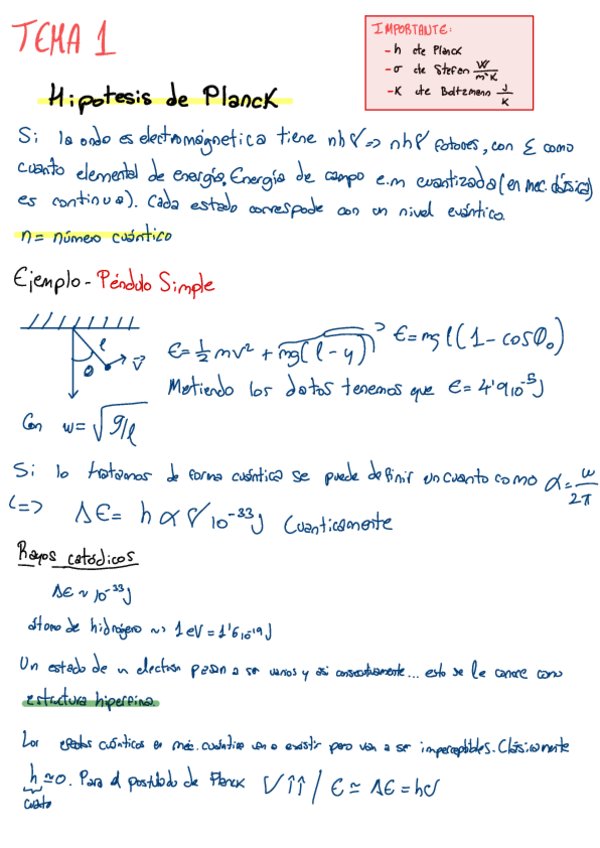 TEMA 1
IMPORTANTE:
- h cte Planck
- σ cte Stefan W/m²K
- K cte Boltzmann J/K
Hipotesis de Planck
Si la onda es electromágnetica tiene nhν => nhν fotones, con ε como
cuanto elemental de energía. Energía de campo e.m cuantizada (en mec. clásica)
es continua). Cada estado correspode con un nivel cuántico.
n = número cuántico
Ejemplo - Péndulo Simple
l
θ
v⃗
E = ½ mv² + mg(l - y)
E = mgl(1 - cosθ₀)
Metiendo los datos tenemos que E = 4'9 10⁻⁵ J
Con w = √g/l
Si lo tratamos de forma cuántica se puede definir un cuanto como α = w/2π
<=> ΔE = hα 10⁻³³ J Cuanticamente
Rayos catódicos
ΔE ~ 10⁻³³ J
átomo de hidrógeno ~> 1 eV = 1'6 10⁻¹⁹ J
Un estado de un electron pasan a ser varios y así consecutivamente... esto se le conoce como
estructura hiperfina.
Los efectos cuónticos en méc. cuántica van a existir pero van a ser imperceptibles. Clásicamente
h ≃ 0. Para el postulado de Planck ν↑↑ / E ≃ ΔE = hν
cuanto